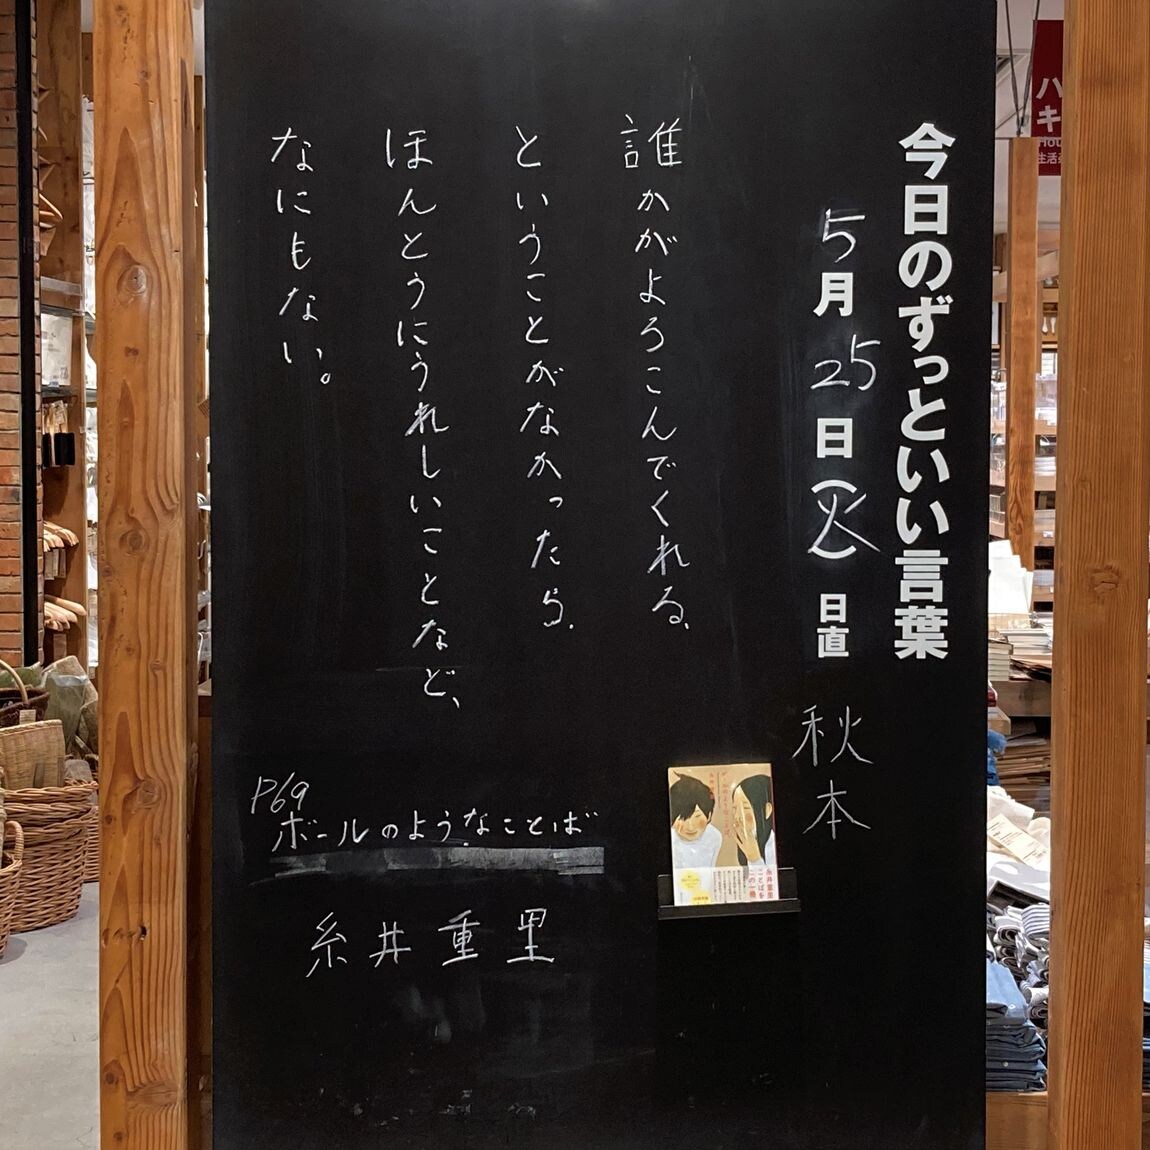 今日のずっといい言葉
5月25日(火)日直 秋本
誰かがよろこんでくれる、
ということがなかったら、
ほんとうにうれしいことなど、
なにもない。
P69
ボールのようなことば
糸井重里
糸井重里
ことばを
この一冊
ハ
キ
生活